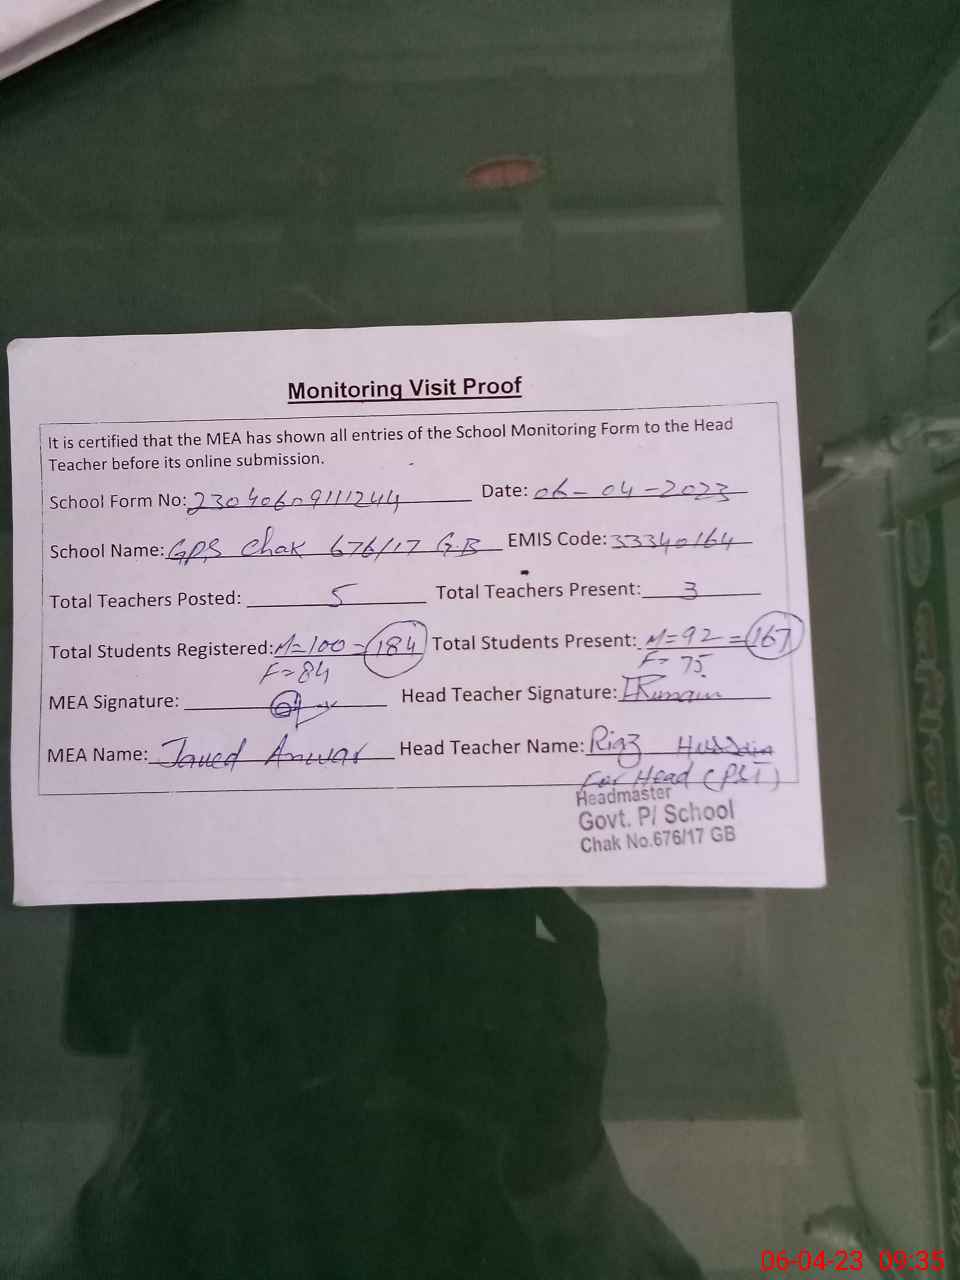 Monitoring Visit Proof
It is certified that the MEA has shown all entries of the School Monitoring Form to the Head
Teacher before its online submission.
School Form No: 23040609111244 Date: 06-04-2023
School Name: GPS Chak 676/17 G.B EMIS Code: 33340164
Total Teachers Posted: 5 Total Teachers Present: 3
Total Students Registered: M=100 = 184 Total Students Present: M=92 = 167
F=84 F=75
MEA Signature: Head Teacher Signature:
MEA Name: Javed Anwar Head Teacher Name: Riaz Hussain
For Head (PST)
Headmaster
Govt. P/ School
Chak No.676/17 GB
06-04-23 09:35